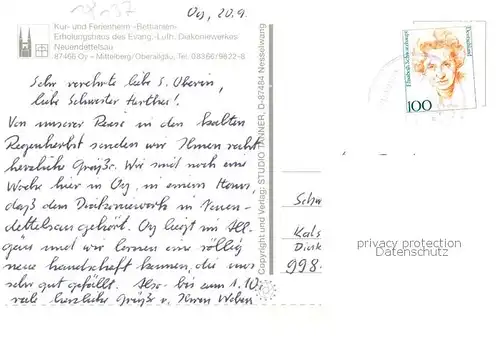 Oy, 20.9.
Kur- und Ferienheim »Bethanien«
Erholungshaus des Evang.-Luth. Diakoniewerkes
Neuendettelsau
87466 Oy – Mittelberg/Oberallgäu, Tel. 08366/9822-8
Sehr verehrte liebe S. Oberin,
liebe Schwester Hertha!
Von unserer Reise in den kalten
Regenherbst senden wir Ihnen recht
herzliche Grüße. Wir sind noch eine
Woche hier in Oy, in einem Haus,
daß dem Diakoniewerk in Neuen-
dettelsau gehört. Oy liegt im All-
gäu und wir lernen eine völlig
neue Landschaft kennen, die uns
sehr gut gefällt. Also - bis zum 1.10.
viele herzliche Grüße v. Ihren
Copyright und Verlag: STUDIO TANNER, D-87484 Nesselwang
Deutschland
Elisabeth Schwarzhaupt
100
Schw
Kais
Diak
998
privacy protection
Datenschutz